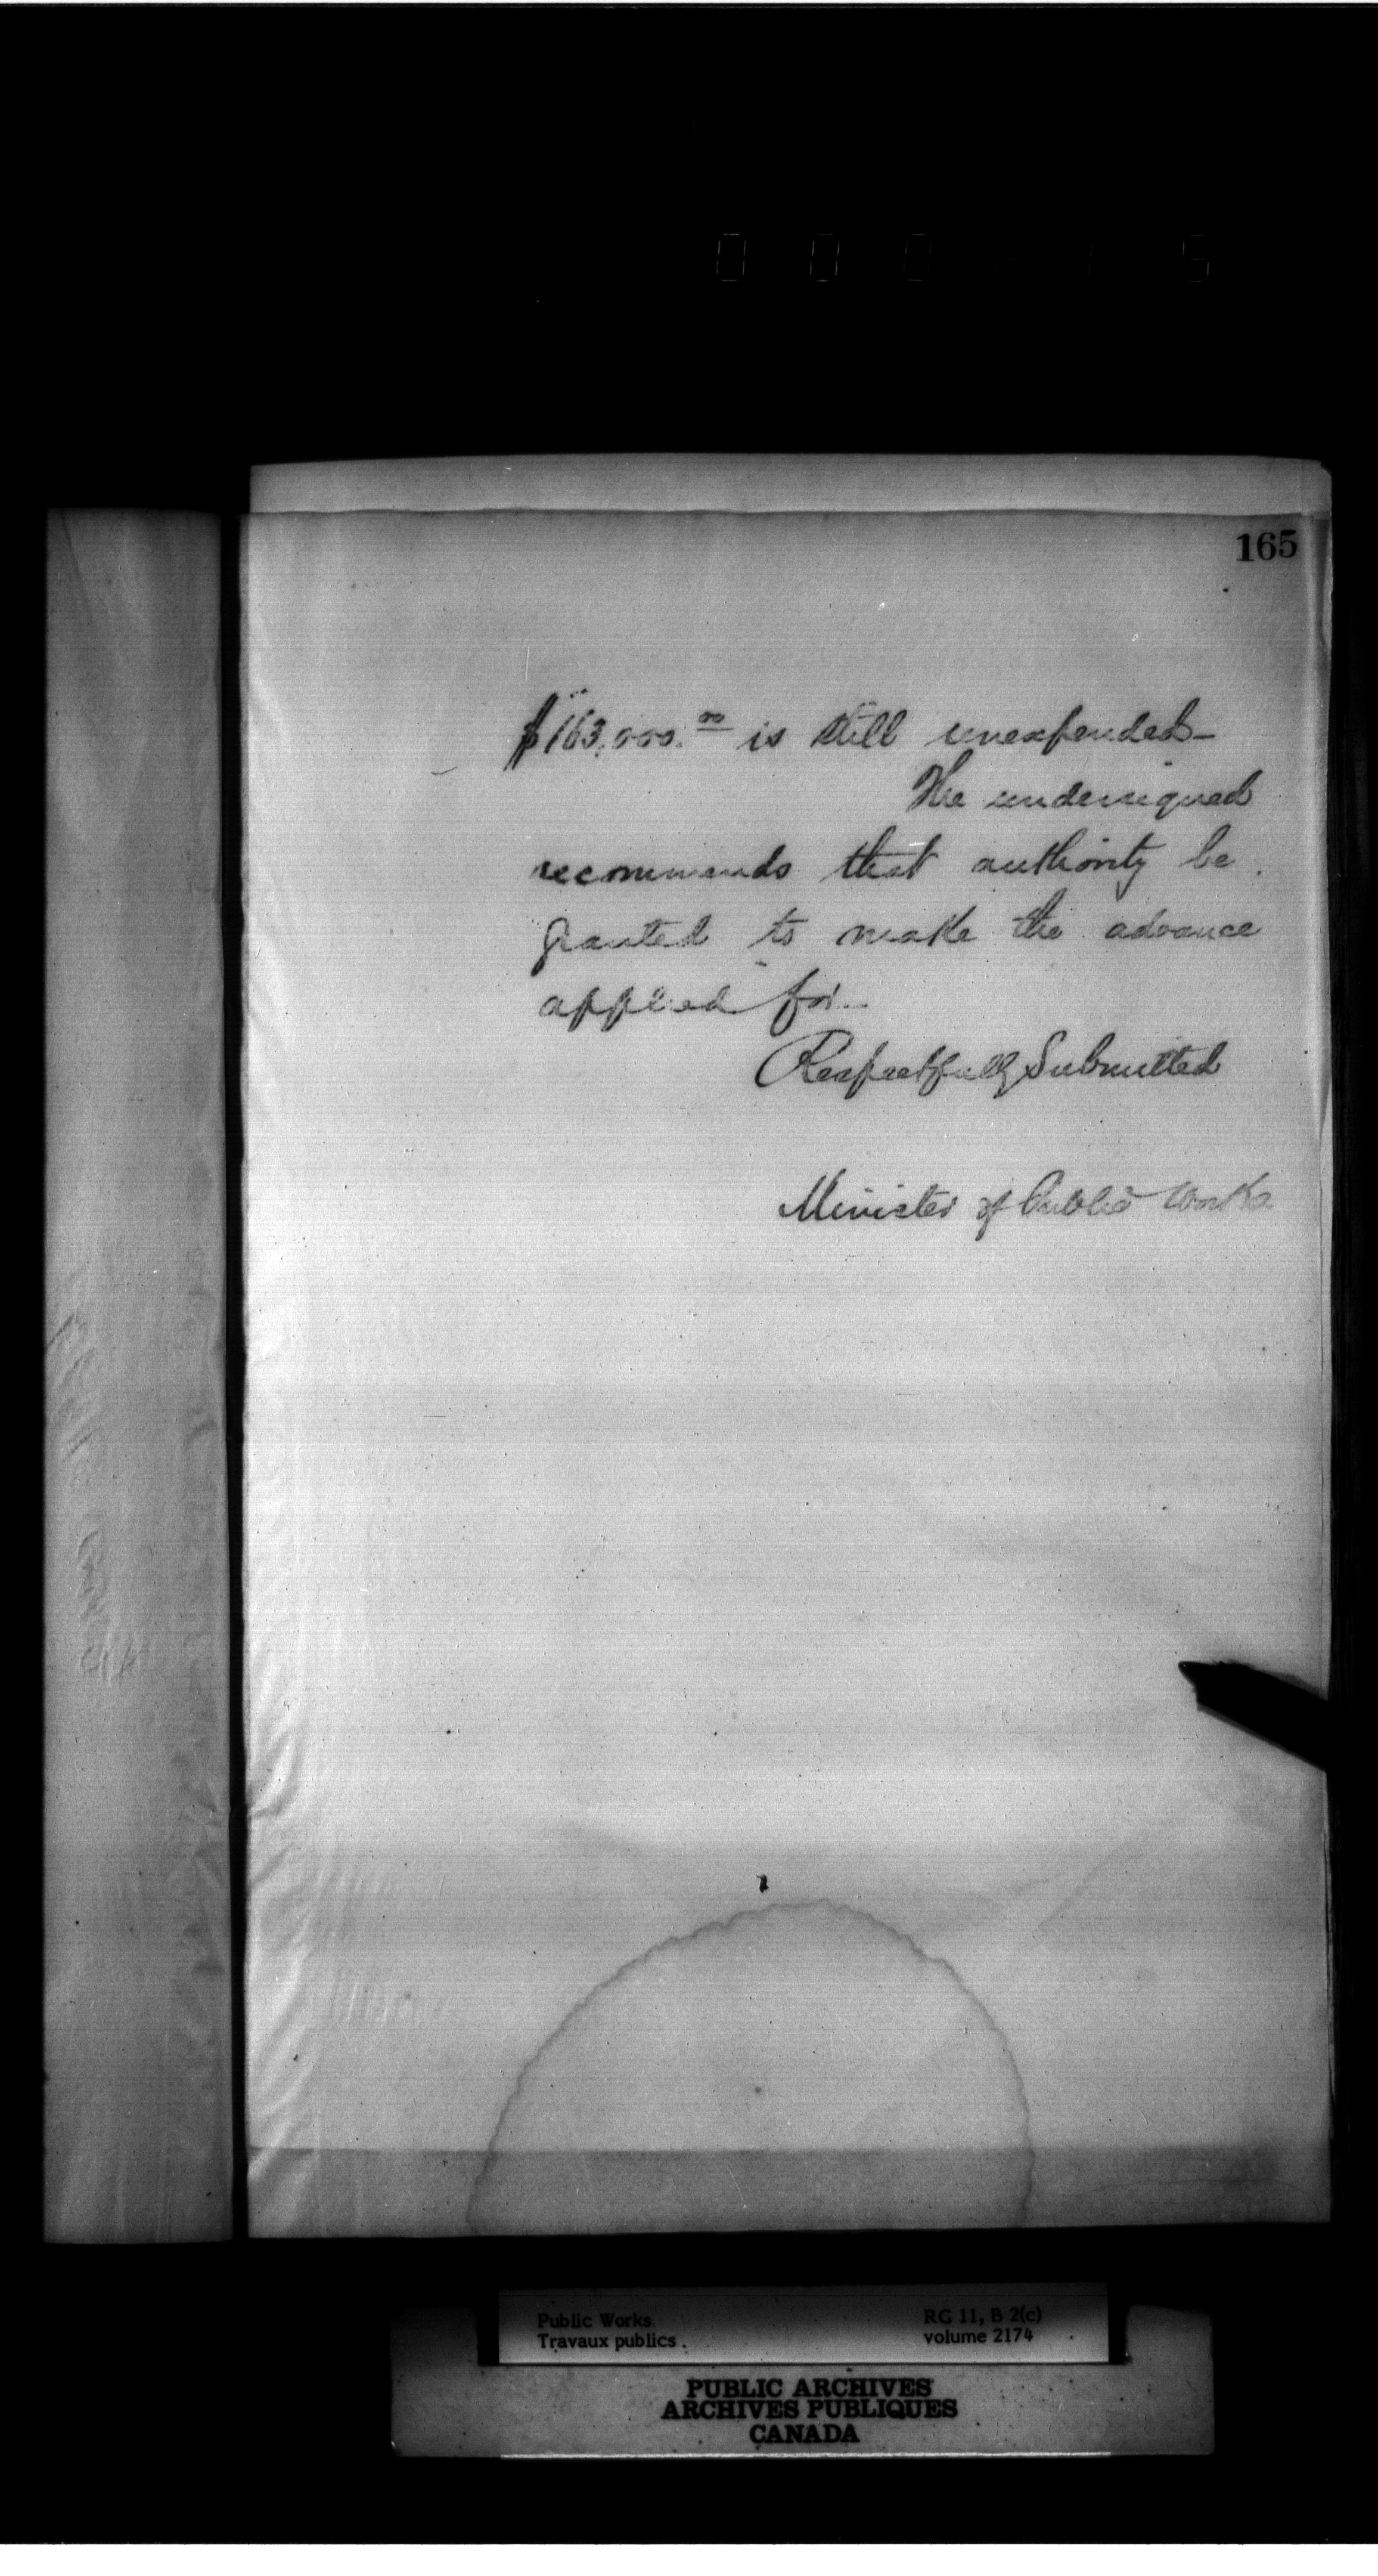 165
$163,000.00 is still unexpended-
The undersigned
recommends that authority be
granted to make the advance
applied for.
Respectfully Submitted
Minister of Public Works
Public Works
Travaux publics
RG 11, B 2(c)
volume 2174
PUBLIC ARCHIVES
ARCHIVES PUBLIQUES
CANADA